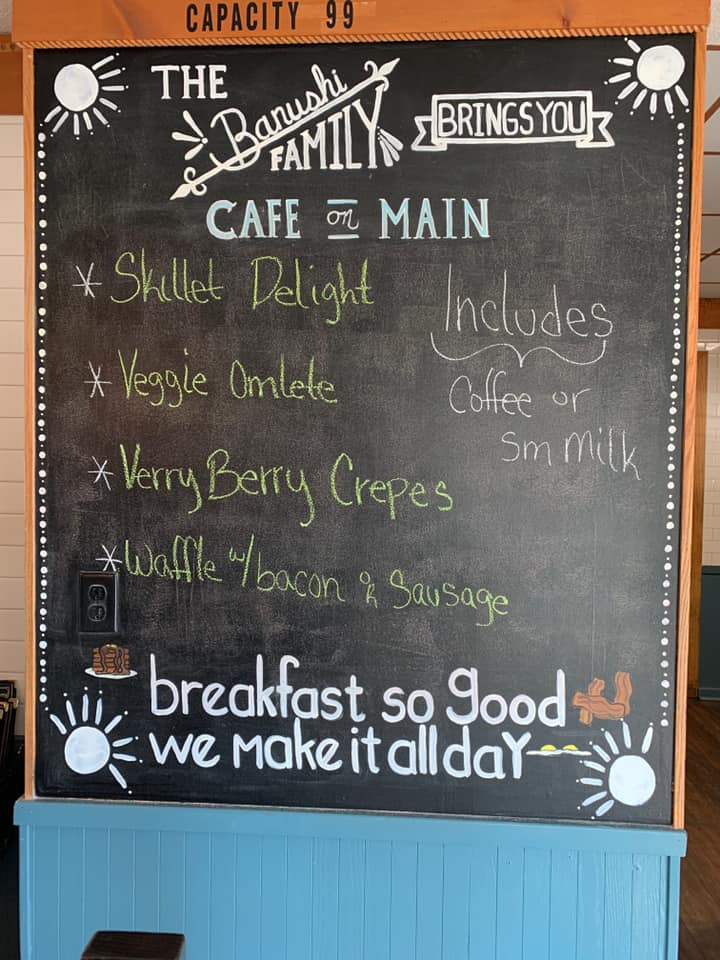 CAPACITY 99
THE Banushi FAMILY BRINGS YOU
CAFE on MAIN
* Skillet Delight
* Veggie Omlete
* Verry Berry Crepes
* Waffle w/bacon or Sausage
Includes
Coffee or
Sm Milk
breakfast so good
we make it all day